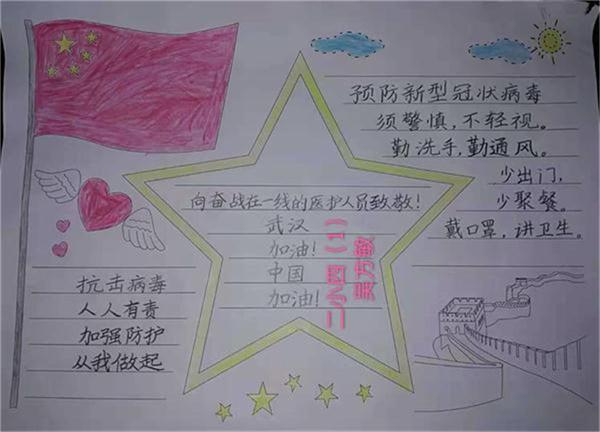 预防新型冠状病毒
须警慎,不轻视。
勤洗手,勤通风。
少出门,
少聚餐。
戴口罩,讲卫生。
向奋战在一线的医护人员致敬!
武汉
加油!
中国
加油!
二小四(1)
吴方敏
抗击病毒
人人有责
加强防护
从我做起